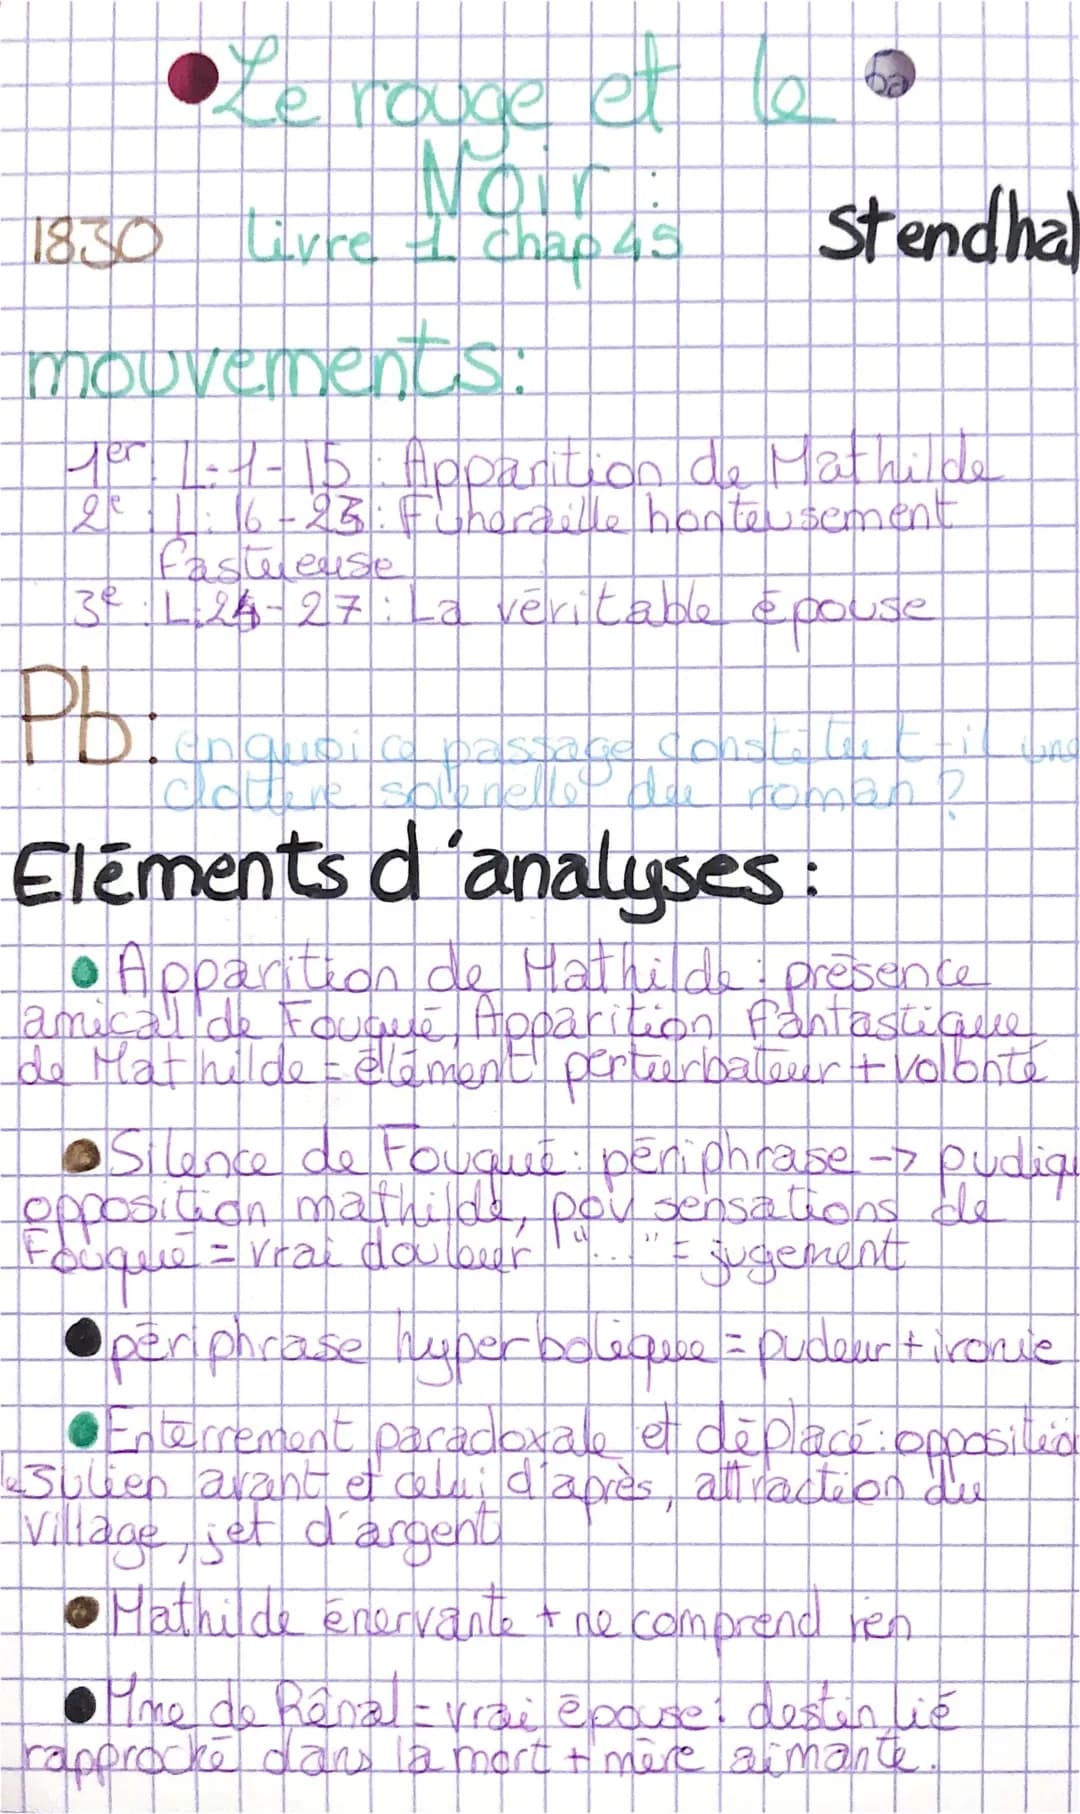 Le rouge et le
Noir :
1830 Livre 1 chap 45 Stendhal
mouvements:
1er L:1-15: Apparition de Mathilde
2e : L: 16-23: Funéraille honteusement
fastueuse
3e : L:24-27: La véritable épouse
Pb: en quoi ce passage constitut-il une
cloture solenelle du roman ?
Eléments d'analyses :
Apparition de Mathilde : présence
amical de Fouqué, Apparition fantastique
de Mathilde = élément perturbateur + volonté
Silence de Fouqué : périphrase -> pudiqu
opposition mathilde, pdv sensations de
Fouqué = vrai douleur "..." = jugement
périphrase hyperbolique = pudeur + ironie
Enterrement paradoxale et déplacé: oppositio
le Julien avant et celui d'après, attraction du
village, jet d'argent
Mathilde énervante + ne comprend rien
Mme de Rênal = vrai épouse: destin lié
rapproché dans la mort + mère aimante.